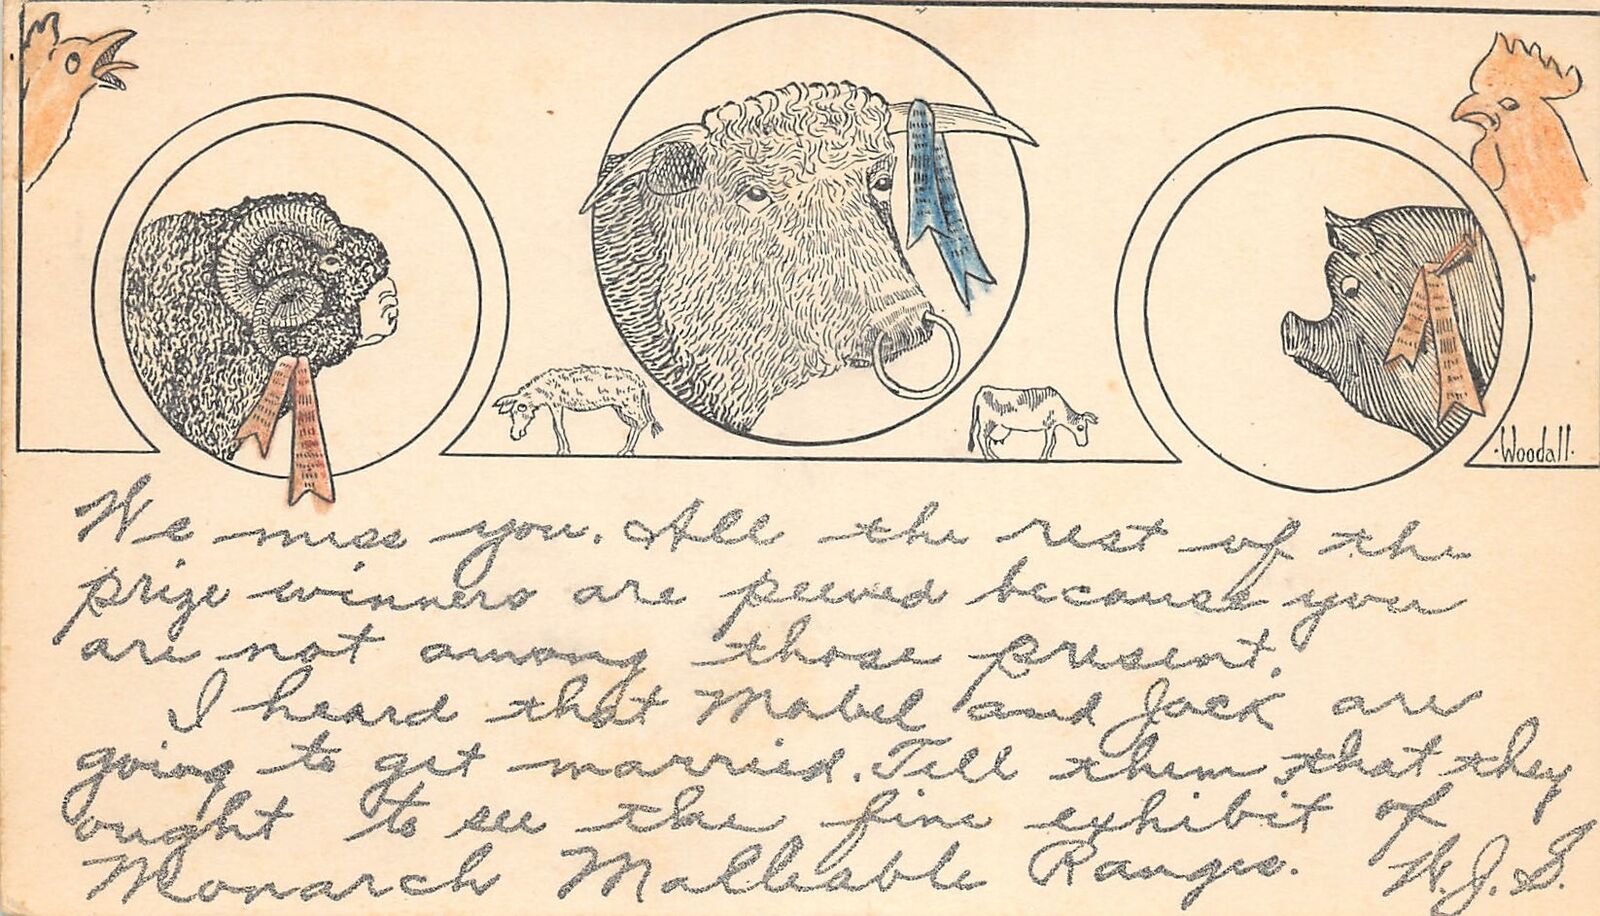 ·Woodall·
We miss you. All the rest of the
prize winners are peeved because you
are not among those present.
I heard that Mabel and Jack are
going to get married. Tell them that they
ought to see the fine exhibit of
Monarch Malleable Ranges. W.J.S.